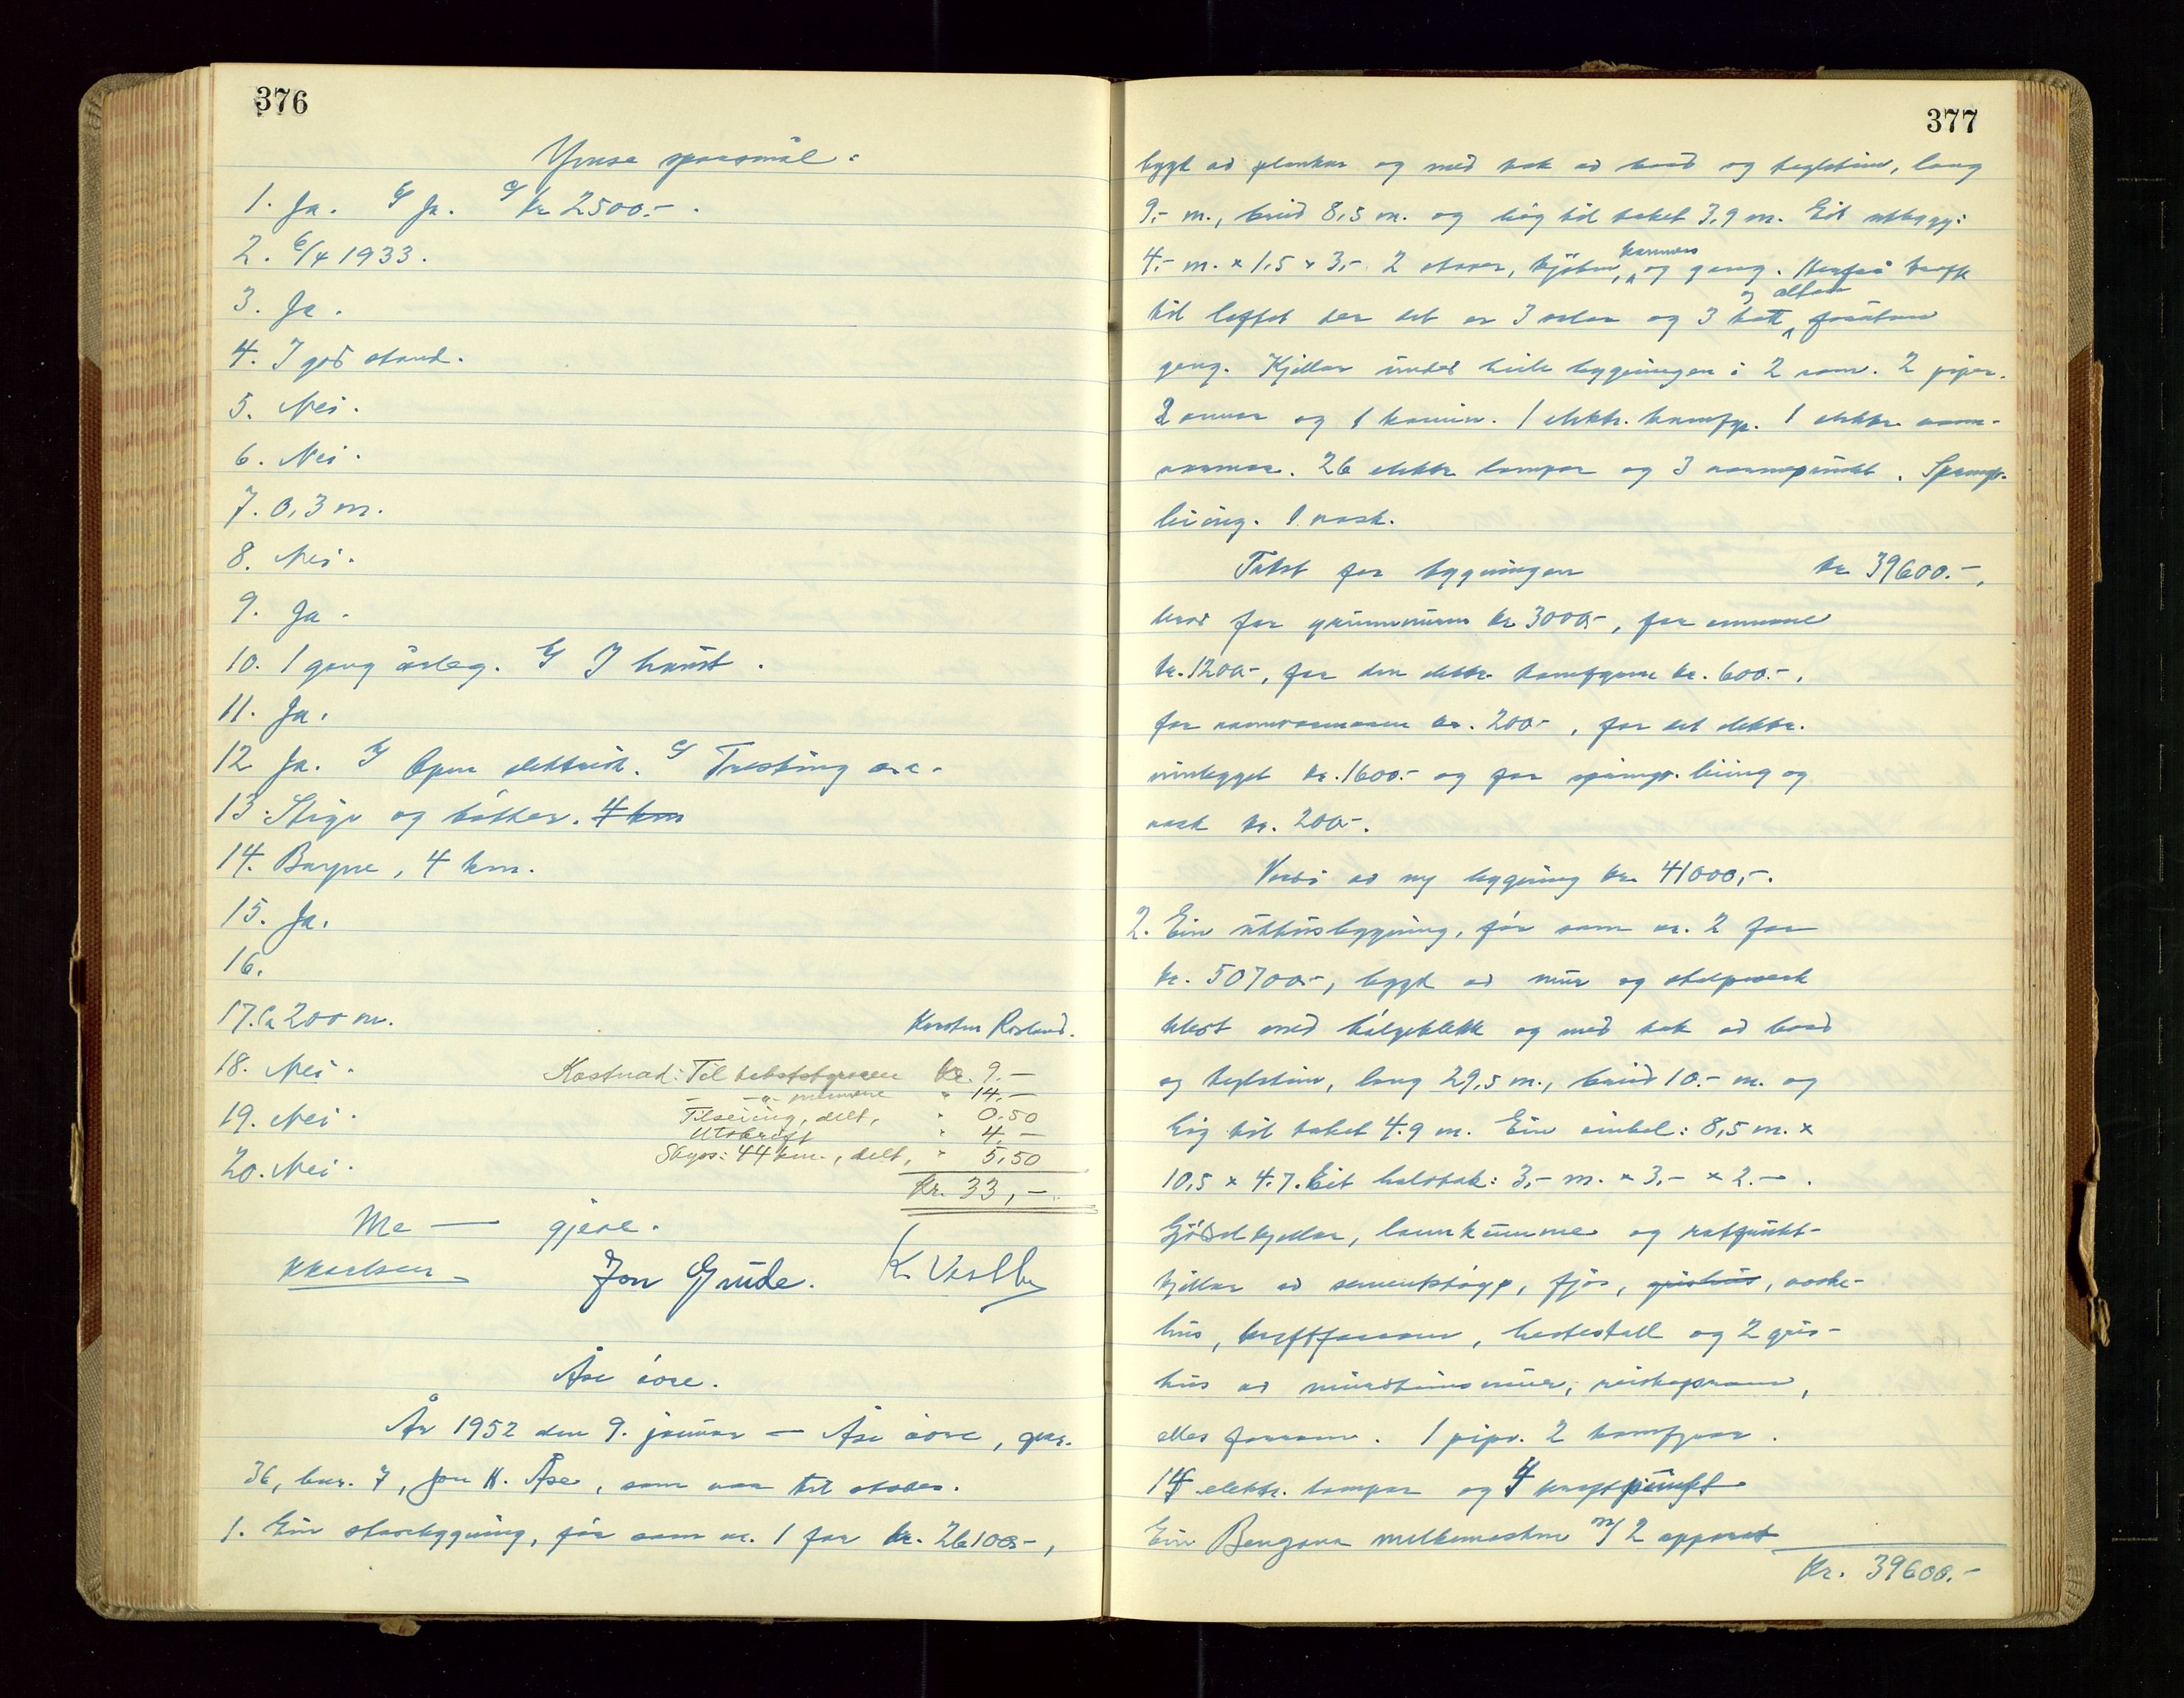 376
Ymse spørsmål:
1. Ja. b/ Ja. c/ kr 2500.-.
2. 6/4 1933.
3. Ja.
4. I god stand.
5. Nei.
6. Nei.
7. 0,3 m.
8. Nei.
9. Ja.
10. 1 gang årleg. b/ I haust.
11. Ja.
12 Ja. b/ Open elektrisk. c/ Tresking o.a.
13. Stige og bøtter. 4 km
14. Bryne, 4 km.
15. Ja.
16.
17. Ca 200 m.
Karsten Rosland.
18. Nei.
Kostnad: Til takststyraren kr. 9.-
- -"- mennene " 14.-
19. Nei.
Tilseiing, delt, " 0.50
Utskrift " 4.-
20. Nei.
Skyss: 44 km., delt, " 5,50
Kr. 33,-
Me — gjeve.
Jon Grude. K. Vestly
Åse øvre.
År 1952 den 9. januar — Åse øvre, gnr.
36, bnr. 7, Jon H. Åse, som var til stades.
1. Ein stovebygning, før som nr. 1 for kr. 26100.-,
377
bygt av plankar og med tak av bord og teglstein, lang
9,- m., breid 8,5 m. og høg til taket 3,9 m. Eit utbygg:
4,- m. x 1,5 x 3,- 2 stover, kjøken, kammers og gang. Herfrå trapp
til loftet der det er 3 soler og 3 kott og altan foruten
gang. Kjellar under heile bygningen i 2 rom. 2 piper.
2 omnar og 1 kamin. 1 elektr. komfyr. 1 elektr. vann-
varmar. 26 elektr. lampor og 3 varmepunkt. Spreng-
leiing. 1 vask.
Takst for bygningen kr 39600.-,
herav for grunnmuren kr 3000.-, for omnane
kr. 1200.-, for den elektr. komfyren kr. 600.-,
for vannvarmaren kr. 200.-, for det elektr.
innlegget kr. 1600.- og for spreng. leiing og
vask kr. 200.-.
Verdi av ny bygning kr. 41000,-.
2. Ein uthusbygning, før som nr. 2 for
kr. 50700.-, bygt av mur og stolpverk
kledt med bølgeblekk og med tak av bord
og teglstein, lang 29,5 m., breid 10.- m. og
høg til taket 4.9 m. Ein vinkel: 8,5 m. x
10,5 x 4.7. Eit halvtak: 3,- m. x 3,- x 2.-.
Gjødselkjellar, landkumme og rotfrukt-
kjellar av sementstøyp, fjøs, grishus, vaske-
hus, kraftforrom, hestestall og 2 gris-
hus av mursteinsmur, reiskapsrom,
elles forrom. 1 pipe. 2 komfyrar.
14 elektr. lampor og 4 kraftpunkt
Ein Bengona melkemaskin m/ 2 apparat
Kr. 39600.-